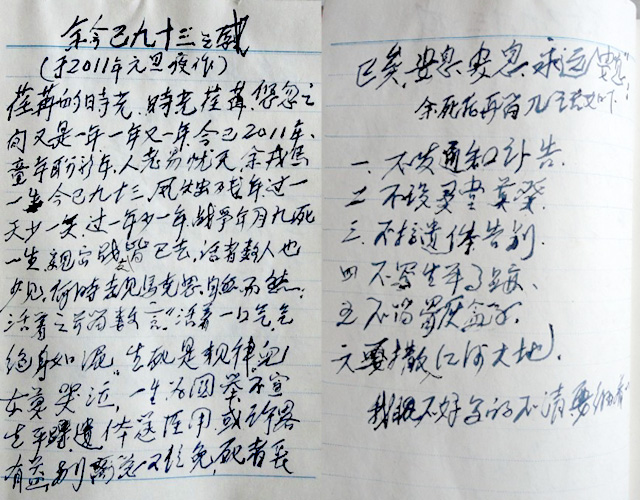 余今已九十三之感
(于2011年元旦夜作)
荏苒的时光,时光荏苒,倏忽之
间又是一年一年又一年,今已2011年、
童年盼新年,人老易忧天,余戎马
一生今已九十三,风烛残年过一
天少一天,过一年少一年,战争年月九死
一生,亲密战皆已去,活者数人也
少见,何时去见马克思,自然而然,
活着之前留数言"活着一口气,气
绝身如泥"生死是规律,儿
女莫哭泣,一生为国举不宣
生平,遗体送医用或许略
有益,别离总又难免,死者长
已矣,安息、安息、永远安息;
余死后再留几言如下:
一、不发通知讣告.
二、不设灵堂
三、不搞遗体告别.
四、不写生平
五、不留骨灰盒
六、要撒江河大地.
我眼不好写的不清